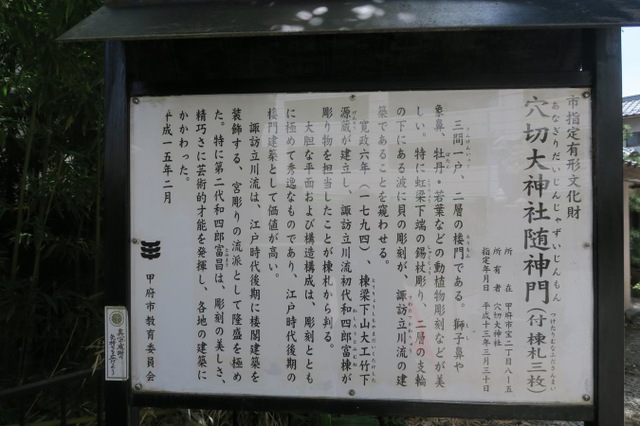 市指定有形文化財
あなぎりだいじんじゃずいじんもん
穴切大神社随神門（付棟札三枚）
つけたりむなふださんまい
所在　甲府市宝二丁目八ー五
所有者　穴切大神社
指定年月日　平成十三年三月三十日
三間一戸、二層の楼門である。獅子鼻や
象鼻、牡丹・若葉などの動植物彫刻などが美
しい。特に虹梁下端の錫杖彫り、二層の支輪
の下にある波に貝の彫刻が、諏訪立川流の建
築であることを窺わせる。
寛政六年（一七九四）、棟梁下山大工竹下
源蔵が建立し、諏訪立川流初代和四郎富棟が
彫り物を担当したことが棟札から判る。
大胆な平面および構造構成は、彫刻ととも
に極めて秀逸なものであり、江戸時代後期の
楼門建築として価値が高い。
諏訪立川流は、江戸時代後期に楼閣建築を
装飾する、宮彫りの流派として隆盛を極め
た。特に第二代和四郎富昌は、彫刻の美しさ、
精巧さに芸術的才能を発揮し、各地の建築に
かかわった。
平成一五年二月
甲府市教育委員会